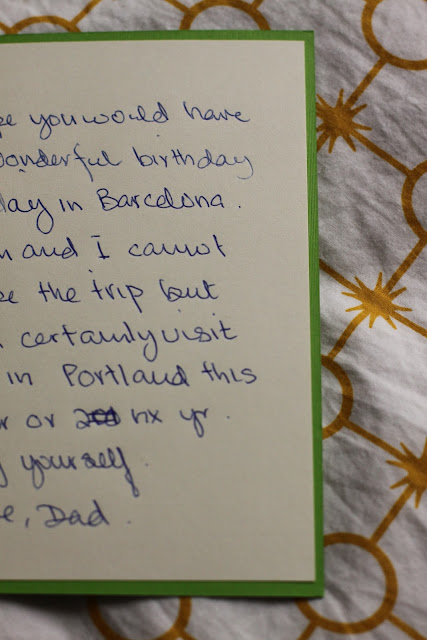 you would have
wonderful birthday
day in Barcelona.
and I cannot
the trip but
certainly visit
in Portland this
or nx yr.
yourself.
Dad.